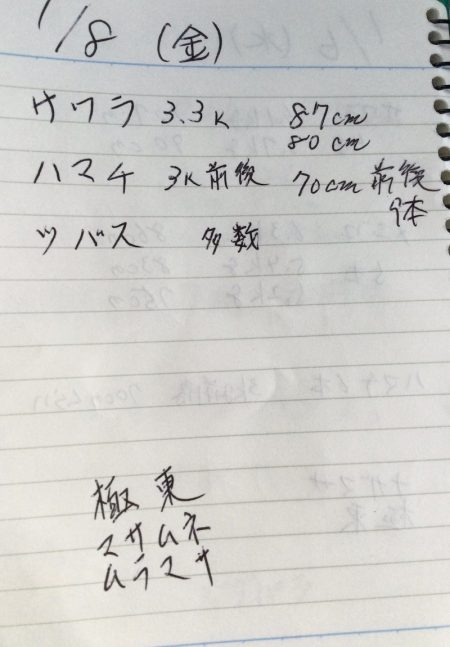 1/8 (金)
サワラ 3.3K 87cm
80cm
ハマチ 3K前後 70cm前後
9本
ツバス 多数
極東
マサムネ
ムラマサ